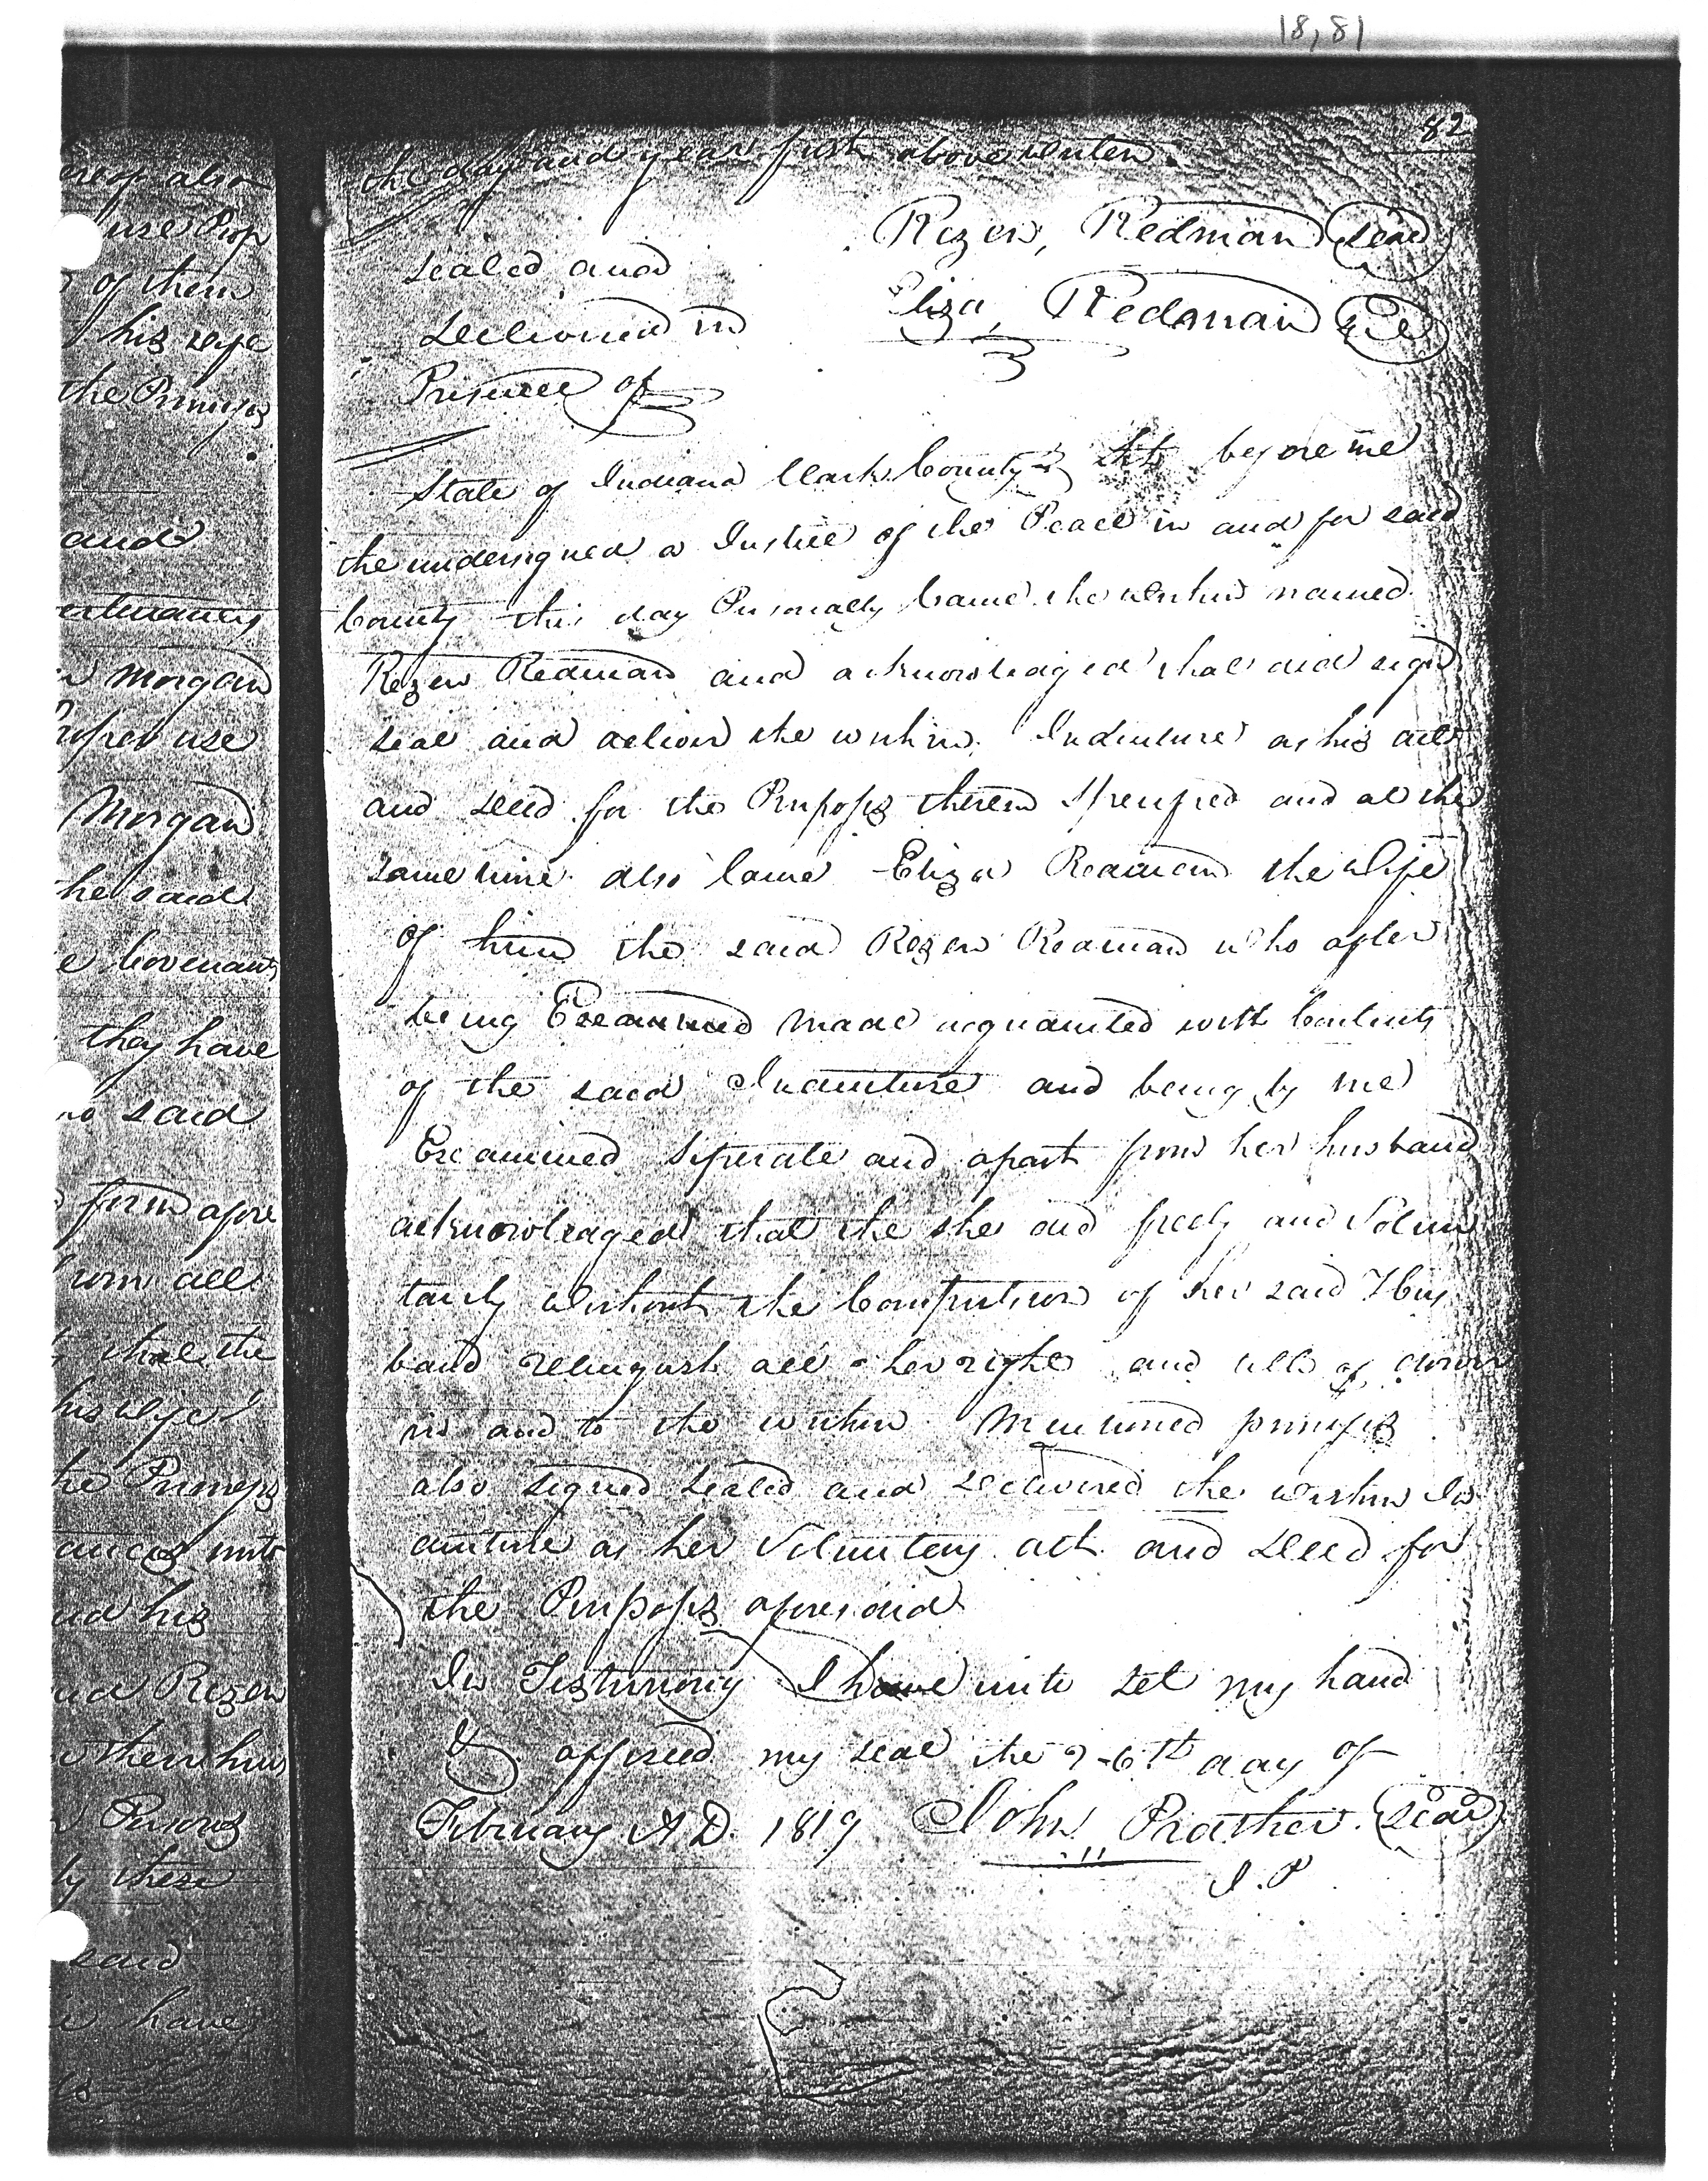 18,81
82
the day and year first above writen
Rezin Redman seal
sealed and
Eliza Redman seal
delivered in
Presence of
State of Indiana Clark County Sct before me
the undersigned a Justice of the Peace in and for said
County this day Personally Came the within named
Rezin Redman and acknowledged that did sign
seal and deliver the within Indenture as his act
and deed for the Purposes therein Specified and at the
same time also Came Eliza Redman the Wife
of him the said Rezin Redman who after
being Examined made acquainted with Contents
of the said Indenture and being by me
Examined Seperate and apart from her husband
acknowledged that the she did freely and Volun
tarily without the Compultion of her said Hus
band relinquish all her right and title of dower
in and to the within Mentioned premises
also signed sealed and delivered the within In
denture as her Voluntary act and deed for
the Purposes aforesaid
In Testimony I have unto set my hand
& affixed my seal the 26th day of
February A D. 1819 John Prather (seal)
J. P
ereof also
use Prop
of them
his wife
the Premises
and
ertinances
Morgan
roper use
Morgan
he said
e Covenants
they have
said
form afore
from all
that the
his wife
he Premises
ances unto
nd his
nd Rezin
them his
Persons
by these
said
have